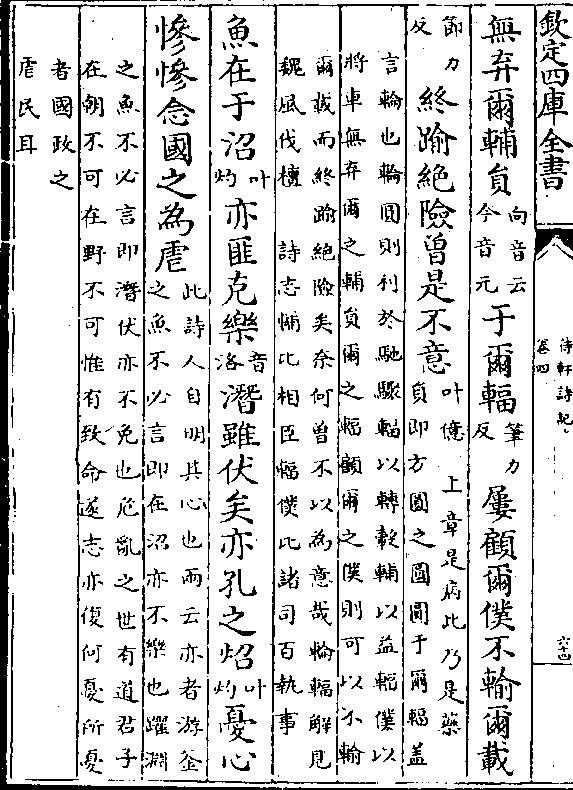 欽定四庫全書
待軒詩記
卷四
六十四
無弃爾輔員向音云今音元于爾輻筆力反屢顧爾僕不輸爾載
節力反終踰絶險曾是不意叶億 上章是病此乃是藥員即方圓之圓圓于爾輻葢
言輪也輪圓則利於馳驟輻以轉轂輔以益輻僕以
將車無弃爾之輔員爾之輻顧爾之僕則可以不輸
爾載而終踰絶險矣奈何曾不以為意哉輪輻解見
魏風伐檀 詩志輔比相臣輻僕比諸司百執事
魚在于沼叶灼亦匪克樂音洛潛雖伏矣亦孔之炤叶灼憂心
慘慘念國之為虐此詩人自明其心也而云亦者游釜之魚不必言即在沼亦不樂也躍淵
之魚不必言即潛伏亦不免也危亂之世有道君子
在朝不可在野不可惟有致命遂志亦復何憂所憂
者國政之
虐民耳